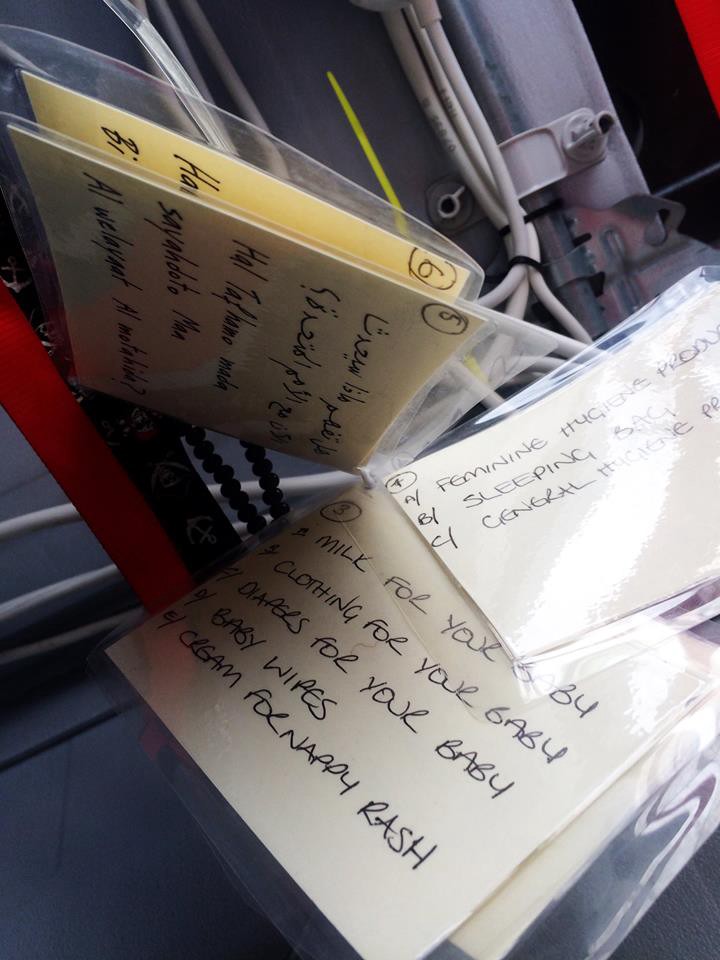 6
Ha
Bi
5
هل تفهم ماذا سيحدث
Hal Tafhamo mada
sayahdoto Man
Al motahida?
4
A/ FEMININE HYGIENE PRODU
B/ SLEEPING BAG
C/ GENERAL HYGIENE PR
3
A/ MILK FOR YOUR BABY
B/ CLOTHING FOR YOUR BABY
C/ DIAPERS FOR YOUR BABY
D/ BABY WIPES
E/ CREAM FOR NAPPY RASH